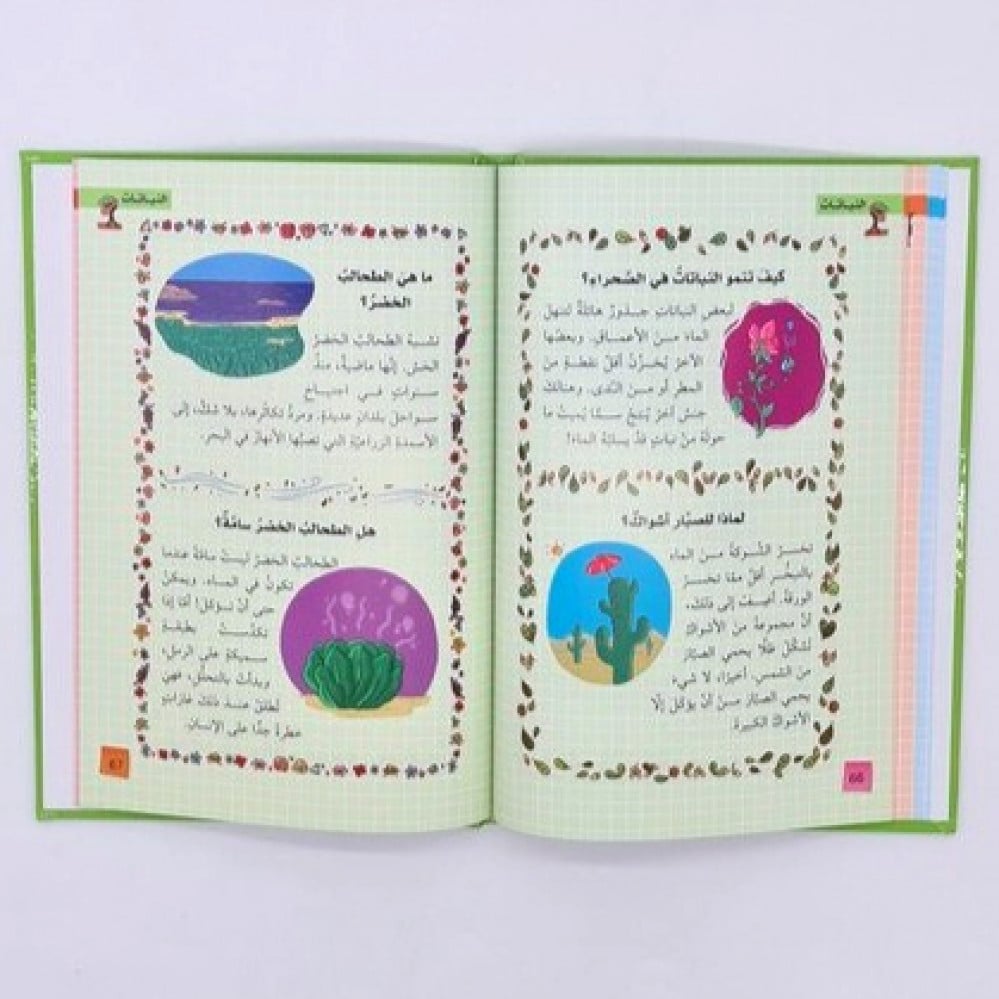 النباتات
كيفَ تَنمو النباتاتُ في الصَّحراءِ؟
لبعضِ النباتاتِ جذورٌ هائلةٌ لتنهلَ
الماءَ منَ الأعماقِ. وبعضُها
الآخرُ يُخَزِّنُ أقلَّ نقطةٍ منَ
المطرِ أو منَ النَّدى. وهنالكَ
جنسٌ آخرُ يُنتِجُ سمًّا يُميتُ ما
حولَهُ مِنْ نباتٍ قدْ يسلبُهُ الماءَ!
لماذا للصبَّارِ أشواكٌ؟
تخسرُ الشَّوكةُ منَ الماءِ
بالتبخُّرِ أقلَّ ممَّا تخسرُ
الورقةُ. أضِفْ إلى ذلكَ،
أنَّ مجموعةً منَ الأشواكِ
تُشكِّلُ ظلًّا يحمي الصبَّارَ
منَ الشمسِ. أخيرًا، لا شيءَ
يحمي الصبَّارَ مِنْ أنْ يؤكلَ إلَّا
الأشواكُ الكبيرةُ.
66
النباتات
ما هيَ الطحالبُ
الخضرُ؟
تشبهُ الطحالبُ الخضرُ
الخسَّ. إنَّها ماضيةٌ، منذُ
سنواتٍ، في اجتياحِ
سواحلِ بلدانٍ عديدةٍ. ومردُّ تكاثُرِها، بلا شكٍّ، إلى
الأسمدةِ الزراعيَّةِ التي تصبُّها الأنهارُ في البحرِ.
هلِ الطحالبُ الخضرُ سامَّةٌ؟
الطحالبُ الخضرُ ليستْ سامَّةً عندما
تكونُ في الماءِ. ويمكنُ
حتى أنْ تؤكلَ! أمَّا إذا
تكدَّستْ بطبقةٍ
سميكةٍ على الرملِ،
وبدأتْ بالتحلُّلِ، فهيَ
تُطلقُ عندَ ذلكَ غازاتٍ
خطرةً جدًّا على الإنسانِ.
67